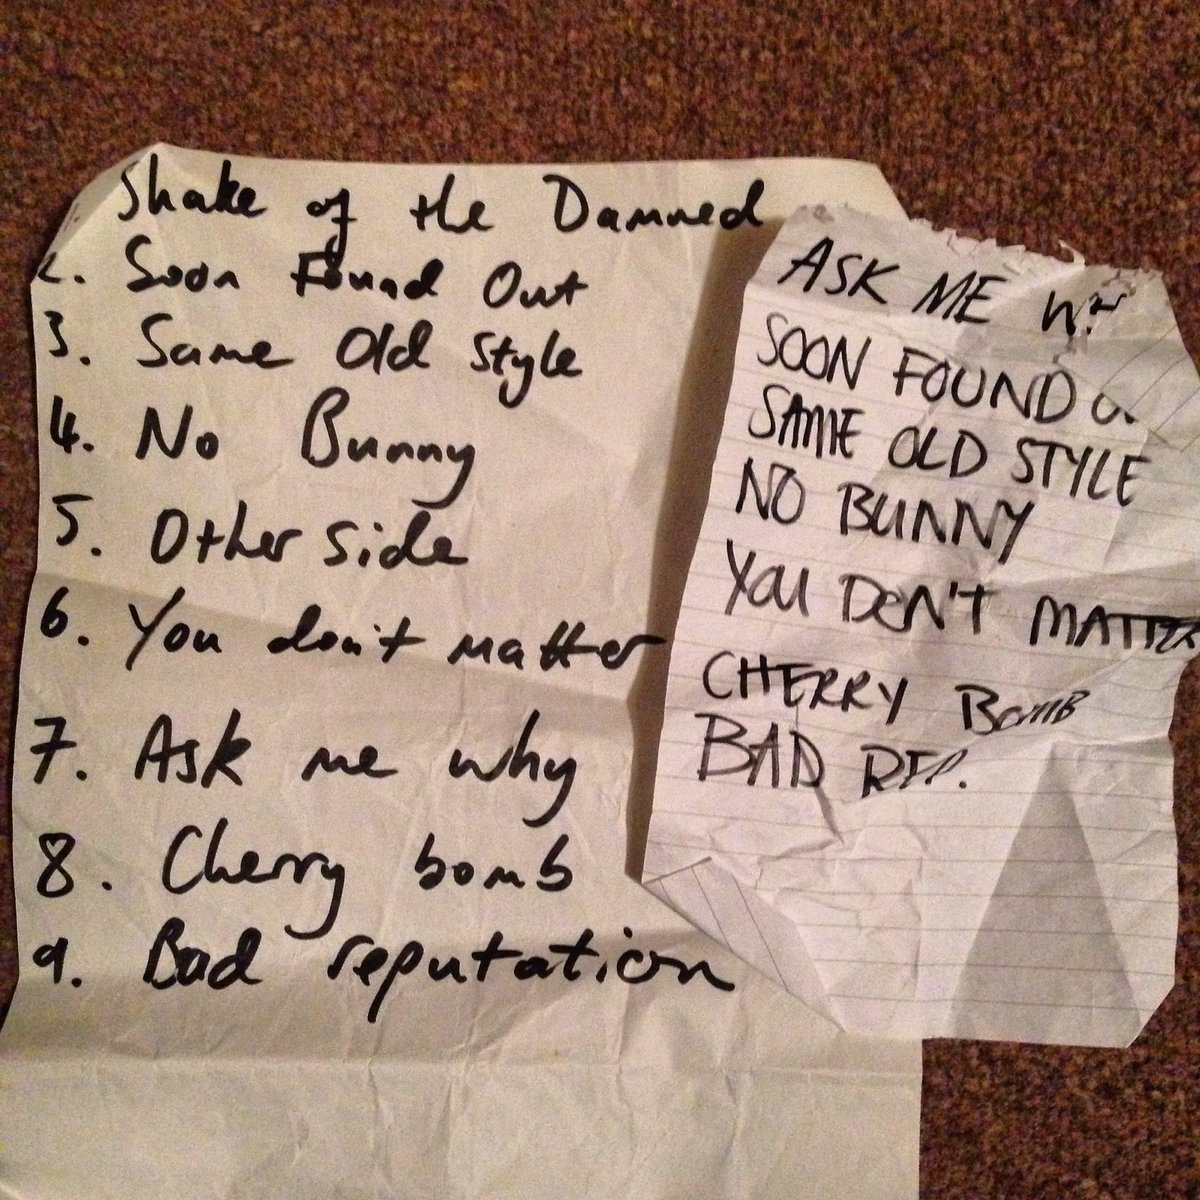 Shake of the Damned
2. Soon Found Out
3. Same Old Style
4. No Bunny
5. Other side
6. You don't matter
7. Ask me why
8. Cherry bomb
9. Bad reputation
ASK ME
SOON FOUND
SAME OLD STYLE
NO BUNNY
YOU DON'T MATTER
CHERRY BOMB
BAD REP.